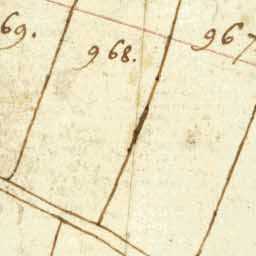 69. 968. 967